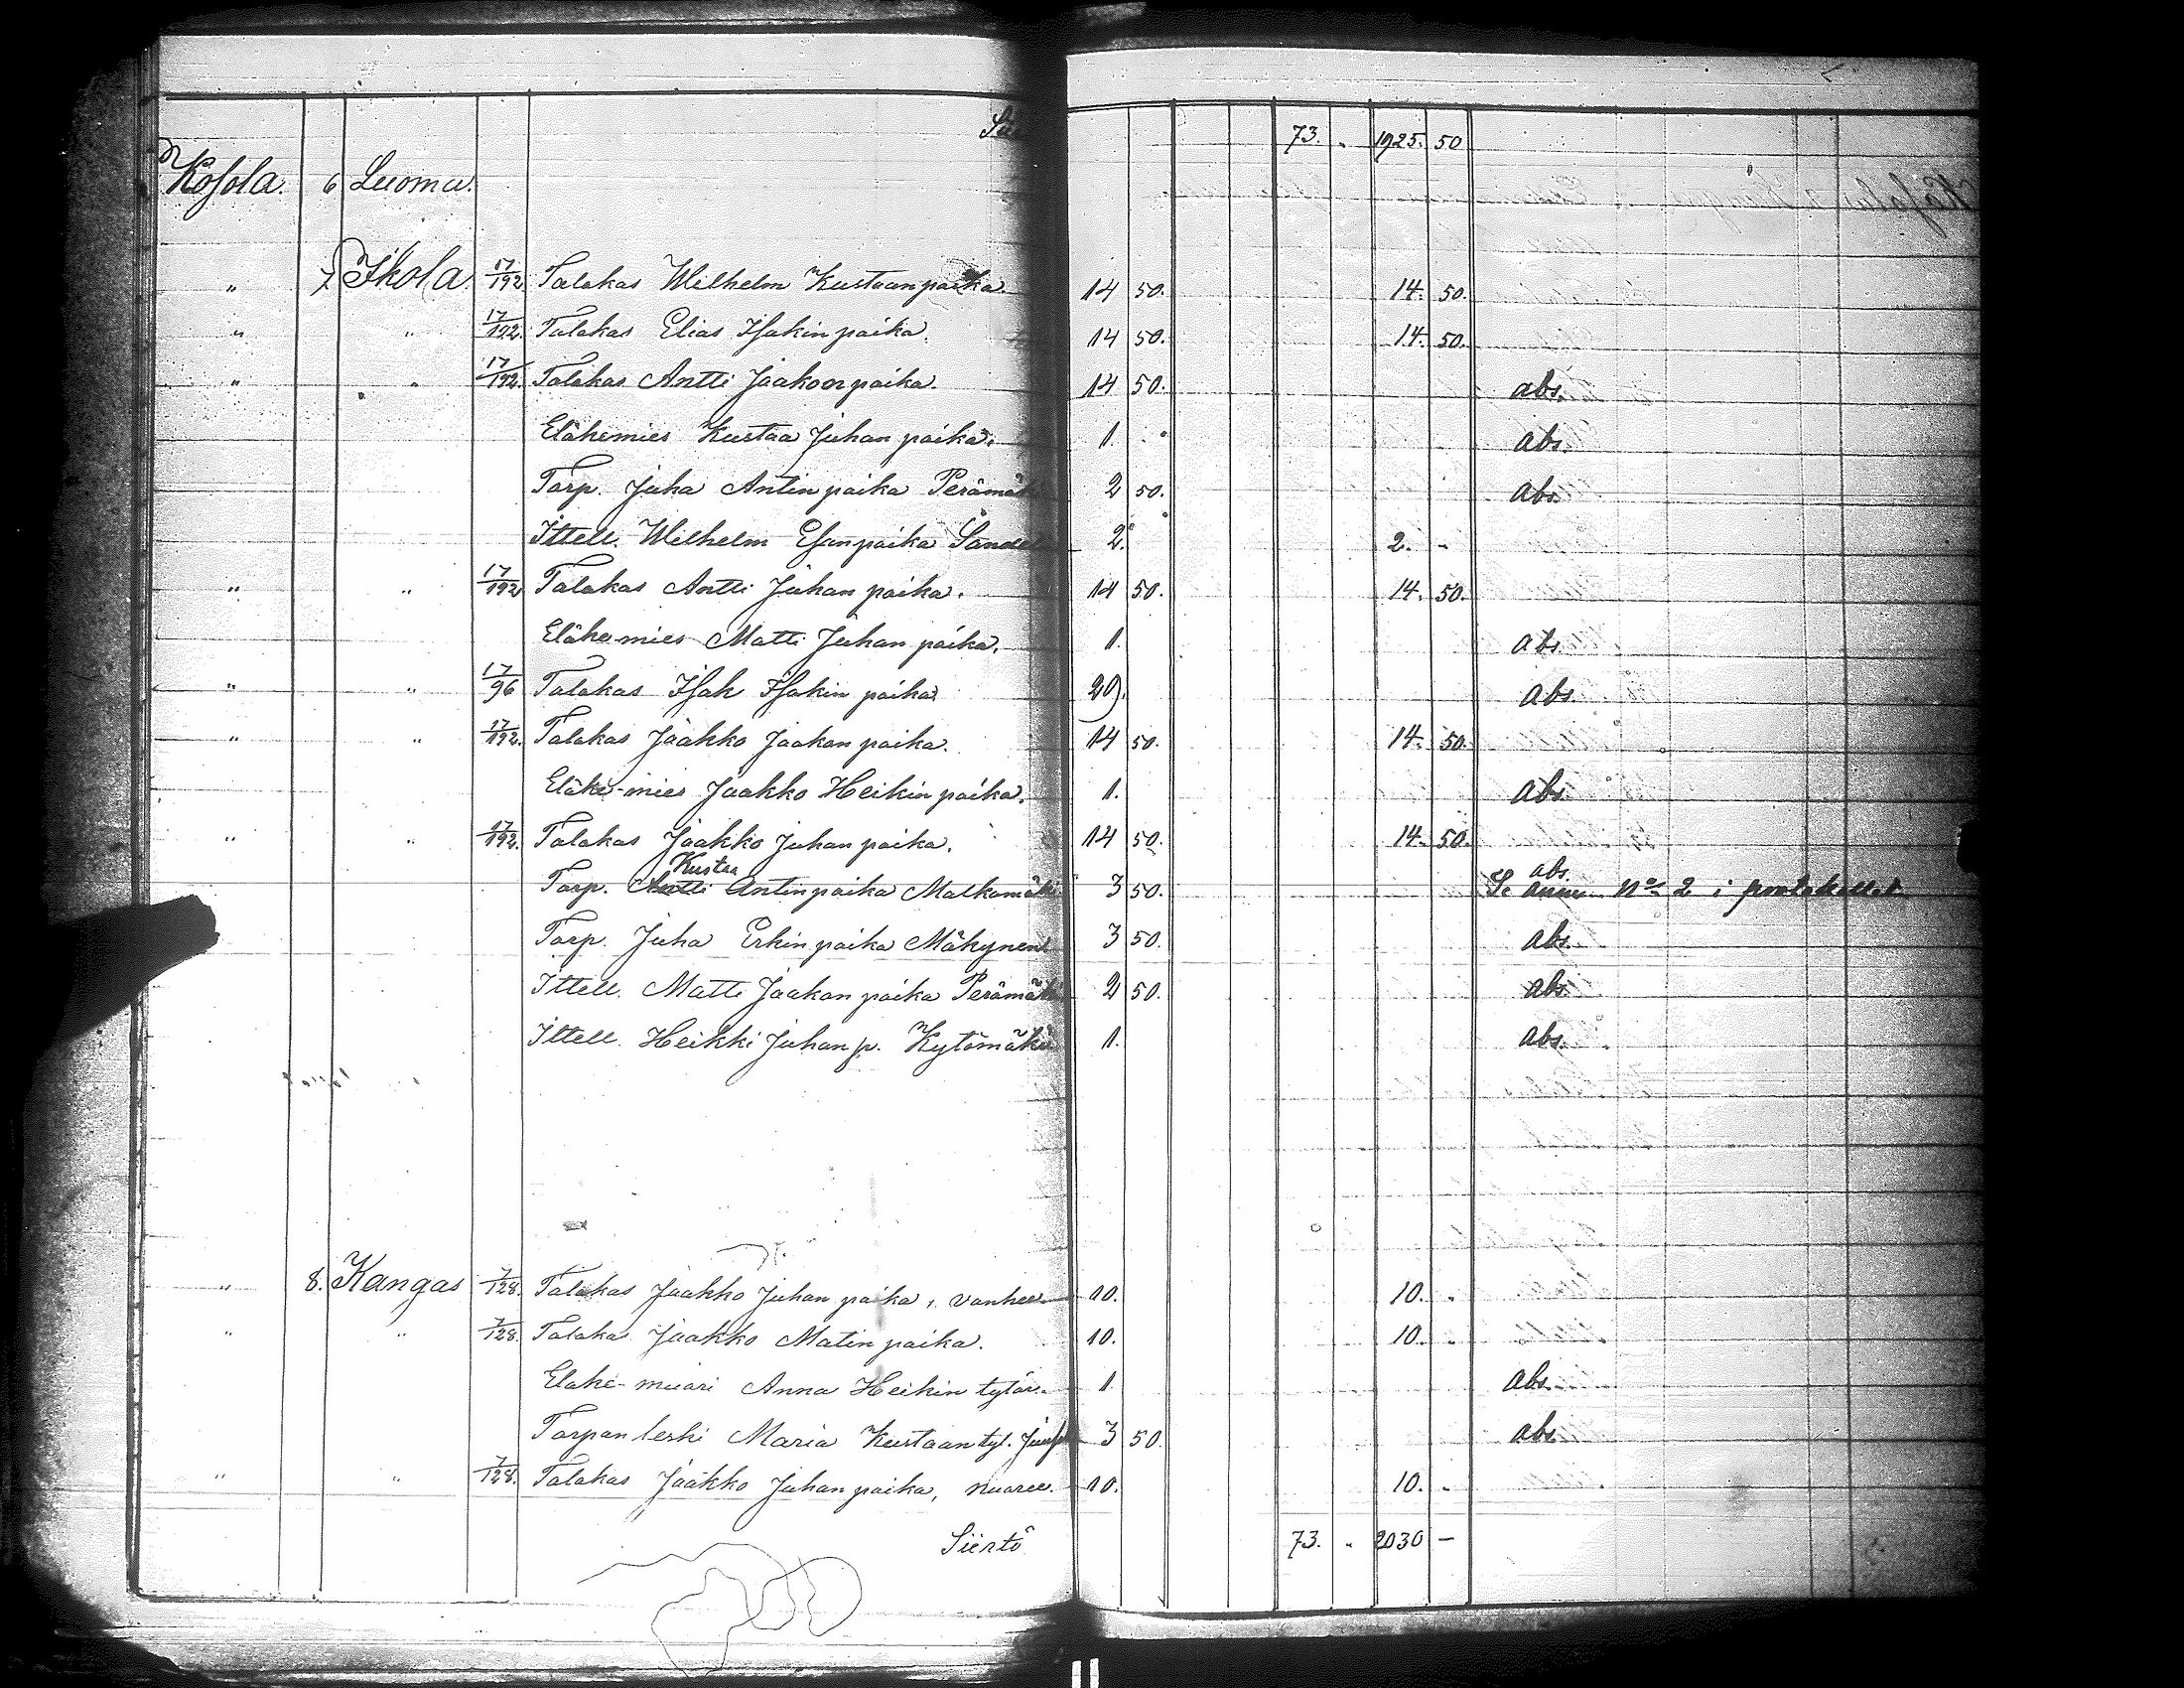 73. " 1925. 50
Kosola. 6 Luoma.
" 7. Ikola 17/192 Talakas Wilhelm Kustaanpoika 14 50. 14. 50.
" " 17/192. Talakas Elias Isakin poika. 14 50. 14. 50.
" " 17/192. Talakas Antti Jaakoon poika. 14 50. abs.
Elähemies Kustaa Juhan poika. 1. abs.
Torp. Juha Antin poika Perämäki 2 50. abs.
Ittell. Wilhelm Esanpoika 2. 2. -
" " 17/192 Talakas Antti Juhan poika. 14 50. 14. 50.
Elähe-mies Matti Juhan poika. 1. abs.
" " 17/96 Talakas Isak Isakin poika 29. abs.
" " 17/192. Talakas Jaakko Jaakan poika. 14 50. 14. 50.
Elähe-mies Jaakko Heikin poika. 1. abs.
" " 17/192. Talakas Jaakko Juhan poika. 14 50. 14. 50.
Kustaa abs.
Torp. Antti Antinpoika Malkamäki 3 50. Se anm. No 2 i protokollet
Torp. Juha Erkin poika Mäkynen 3 50. abs.
Ittell. Matti Jaakan poika Perämäki 2 50. abs.
Ittell. Heikki Juhan p. Kytömäki 1. abs.
" 8. Kangas 7/128. Talakas Jaakko Juhan poika, vanhee. 10. 10. "
" " 7/128. Talakas Jaakko Matin poika. 10. 10. "
Elähe-muori Anna Heikin tytär. 1. abs.
Torpan leski Maria Kustaan tyt. 3 50. abs.
" " 7/128. Talakas Jaakko Juhan poika, nuoree. 10. 10. "
Siertö 73. " 2030 -